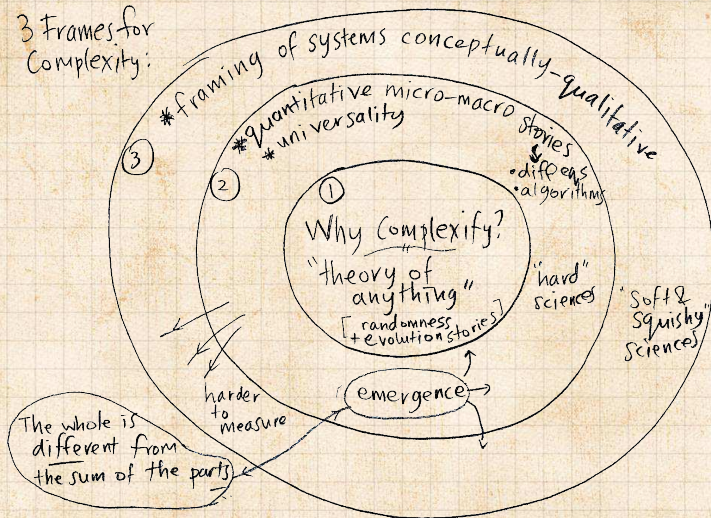 3 Frames for
Complexity:
*framing of systems conceptually-qualitative
③
*quantitative micro-macro stories
*universality
• diffeqs
• algorithms
②
①
Why Complexify?
"theory of
anything"
[randomness
+ evolution stories]
"hard"
sciences
"soft &
squishy"
sciences
harder
to
measure
emergence
The whole is
different from
the sum of the parts